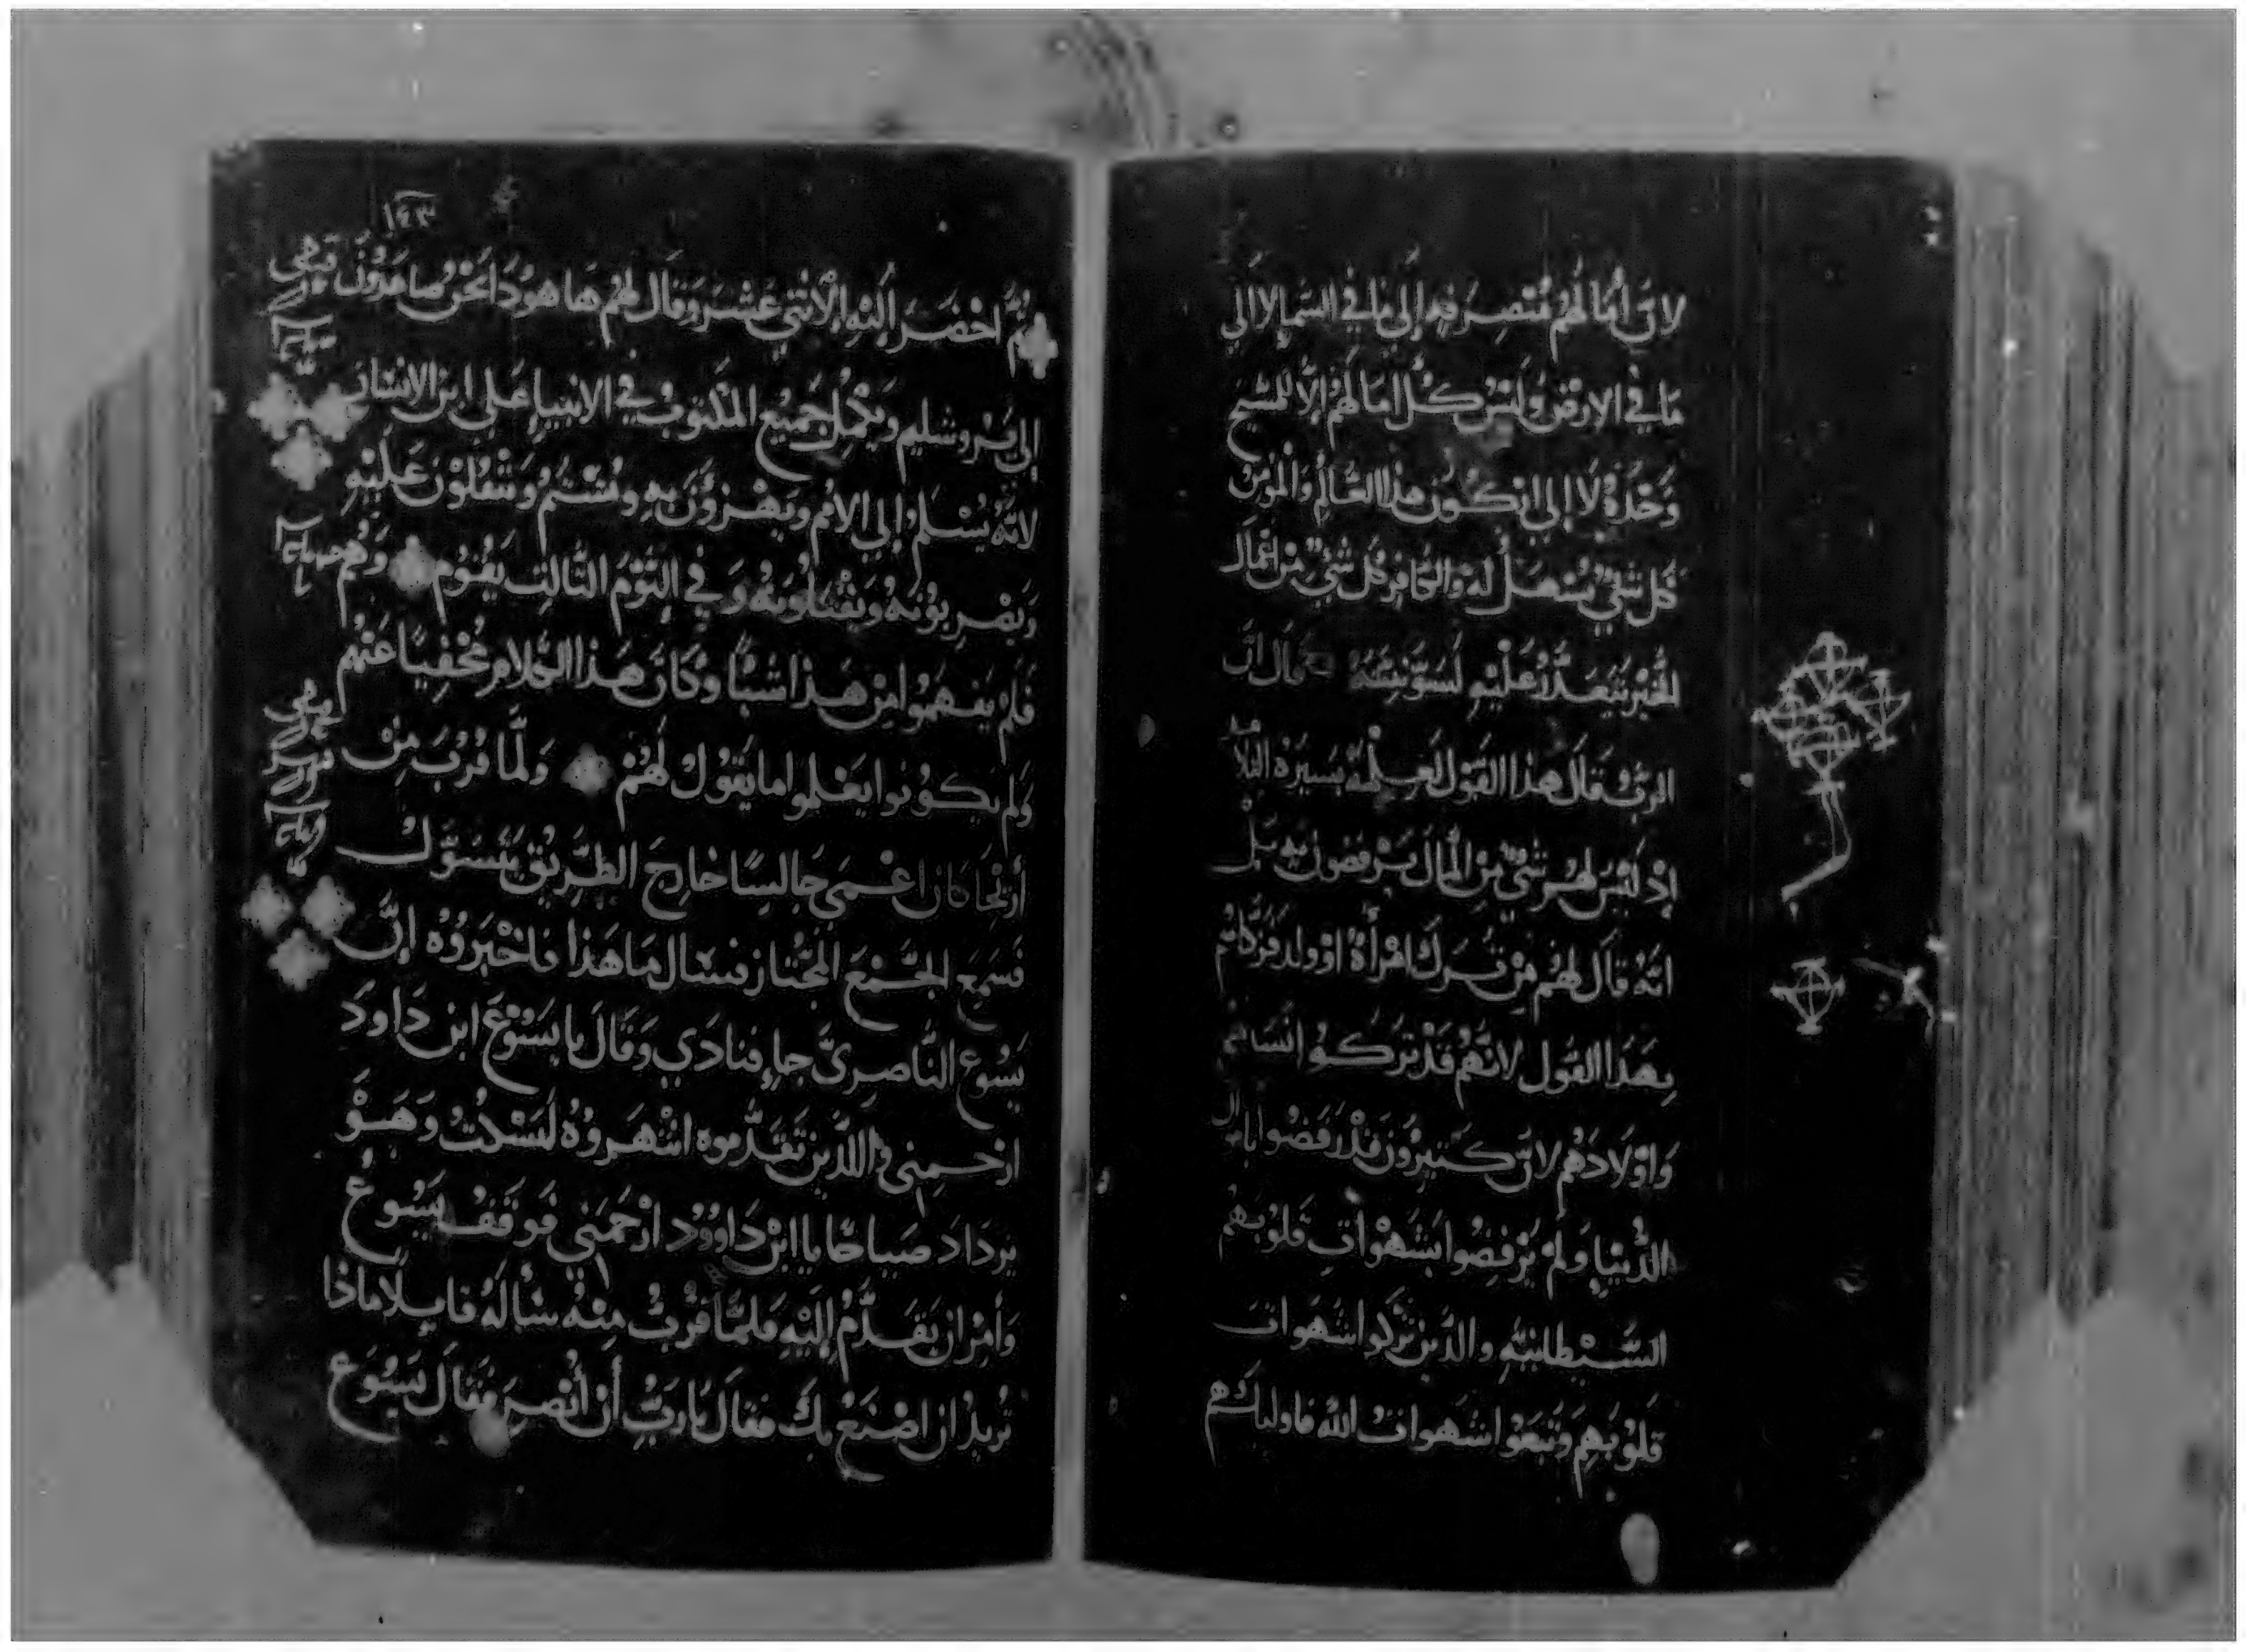 لان امالهم منتصرفه إلى ما في السما لا الى
ما في الارض وليس كل امالهم إلا للمسيح
وحده لا إلى ان كون هذا العالم والمومن
كل شي يسهل له والكافر كل شي من اعمال
الخير يتعذر عليه لسو نيته قال ان
الرب قال هذا القول لعلمه بسيرة التلا
ميد
إذ ليس لهم شي من المال يرفضونه بل
انه قال لهم من ترك امرأة او ولد فزكاهم
بهذا القول لانهم قد تركو انسابهم
واولادهم لان كتيرون قد رفضوا بامال
الدنيا ولم يرفضوا بشهوات قلوبهم
الشيطانيه والدين تركوا شهوات
قلوبهم وتبعوا شهوات الله فاوليك هم
١٤٣
ثم احضر إليه الاتني عشر وقال لهم ها هودا نحن صاعدون
إلى يروشليم ويكمل جميع المكتوب في الانبيا على ابن الانسان
لانه يسلم إلى الامم ويهزون به ويشتم ويتفلون عليه
ويضربونه ويقتلونه وفي اليوم التالت يقوم وهم
فلم يفهموا من هذا شيا وكان هذا الكلام مخفيا عنهم
ولم يكونوا يعلموا ما يقول لهم ولما قرب من
أريحا كان اعمى جالسا خارج الطريق يتسول
فسمع الجمع المجتاز فسال ما هذا فاخبروه إن
يسوع الناصري جا فنادي وقال يا يسوع ابن داود
ارحمني والدين تقدموه انتهروه ليسكت وهو
يزداد صياحا يا ابن داوود ارحمني فوقف يسوع
وأمر ان يقدم إليه فلما قرب منه سأله قايلا ماذا
تريد ان اصنع بك فقال يا رب أن أنصر فقال يسوع